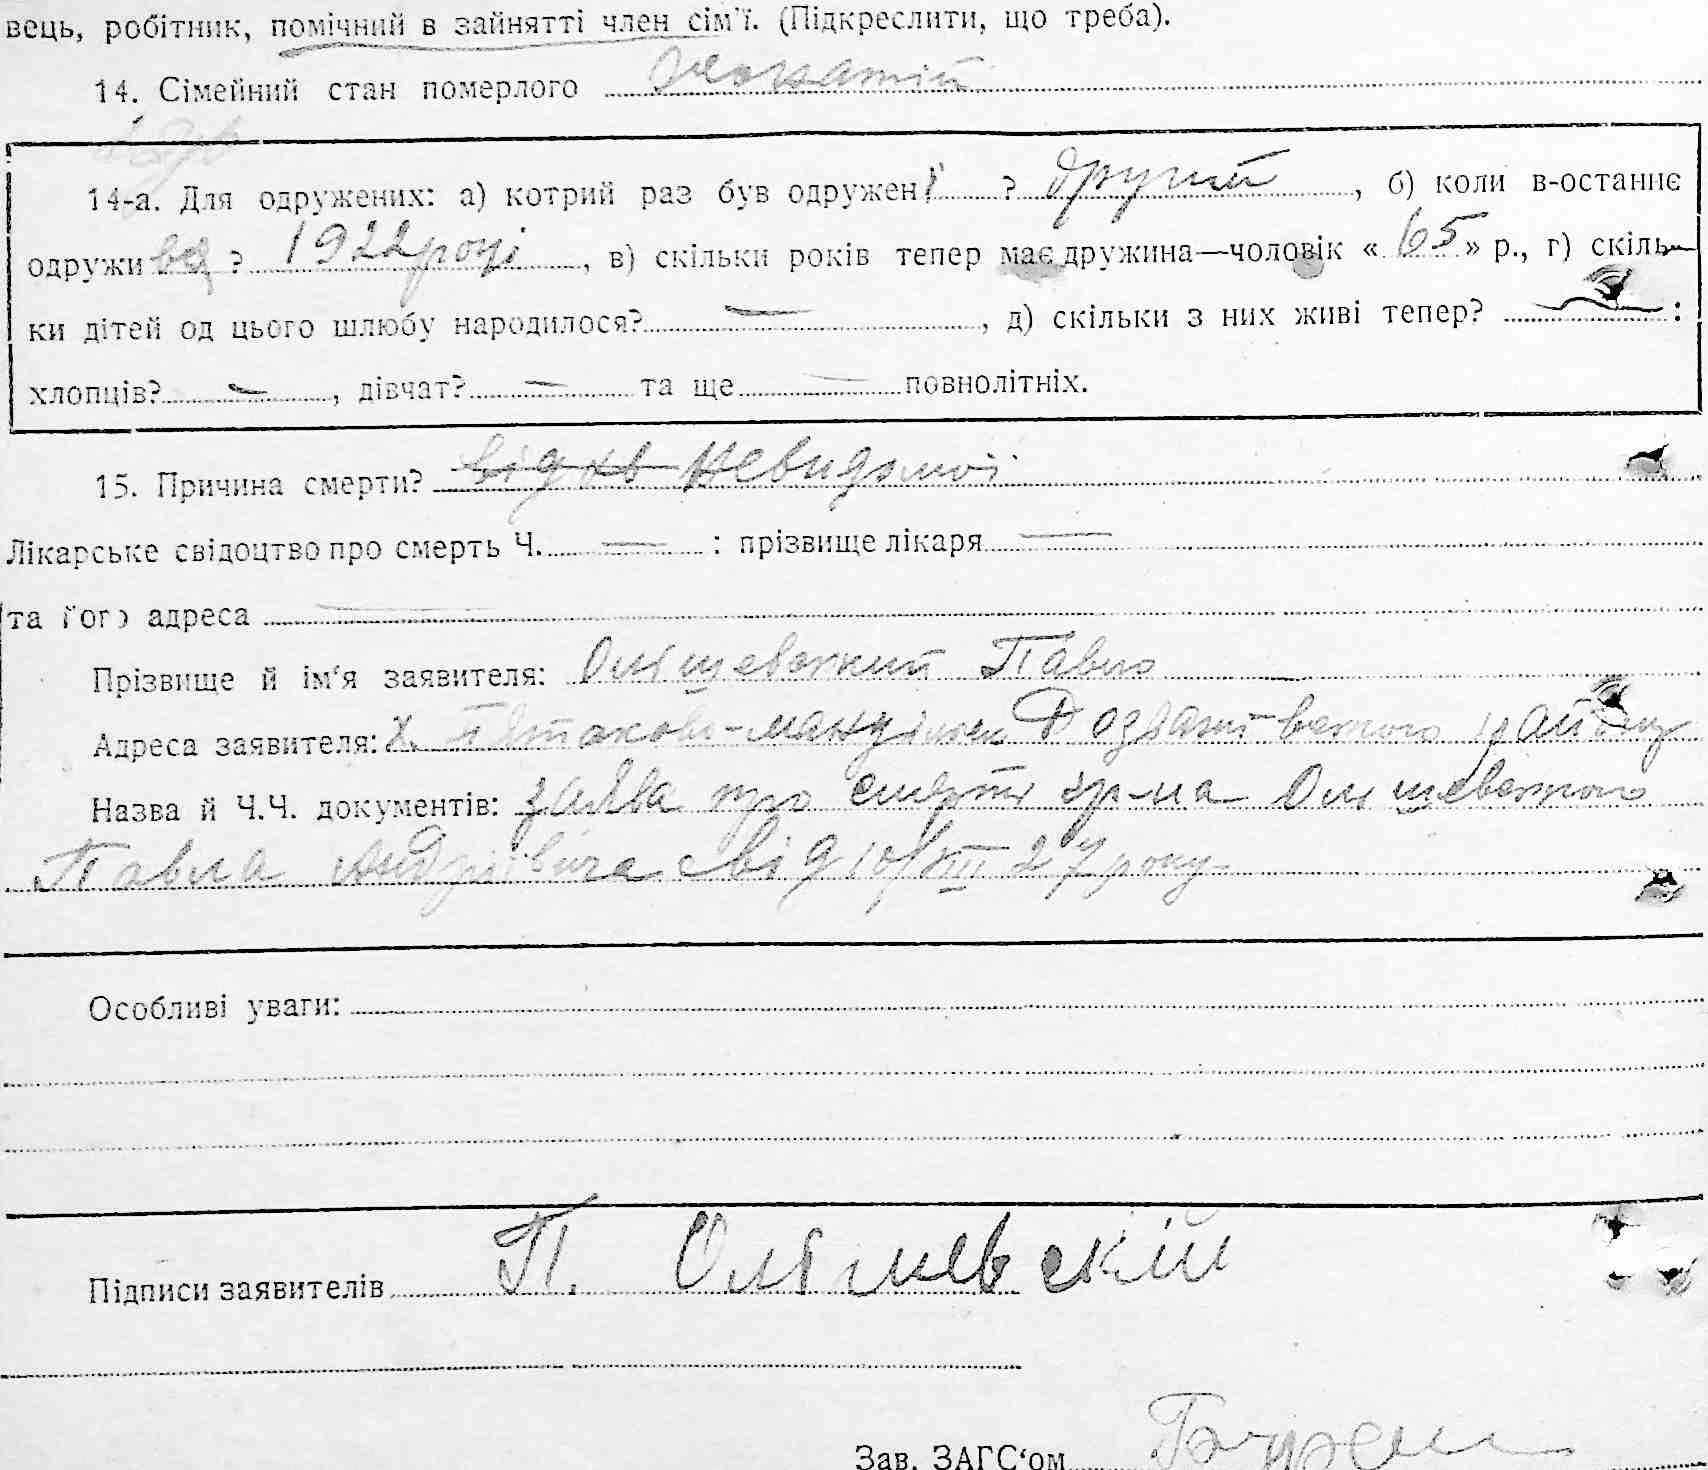 вець, робітник, помічний в зайнятті член сім'ї. (Підкреслити, що треба).
14. Сімейний стан померлого жонатий
14-а. Для одружених: а) котрий раз був одружен ? другий, б) коли в-останнє
одружився ? 1922 році, в) скільки років тепер має дружина—чоловік « 65 » р., г) скіль-
ки дітей од цього шлюбу народилося? —, д) скільки з них живі тепер? — :
хлопців? —, дівчат? — та ще — повнолітніх.
15. Причина смерти? від хв невидомої
Лікарське свідоцтво про смерть Ч. — : прізвище лікаря —
та його адреса —
Прізвище й ім'я заявителя: Олішевский Павло
Адреса заявителя: х. району
Назва й Ч.Ч. документів: заява про смерть гр-на Олішевского
Павла Андріівича від 10/VIII 27 року
Особливі уваги:
Підписи заявителів П. Олішевскій
Зав. ЗАГС'ом